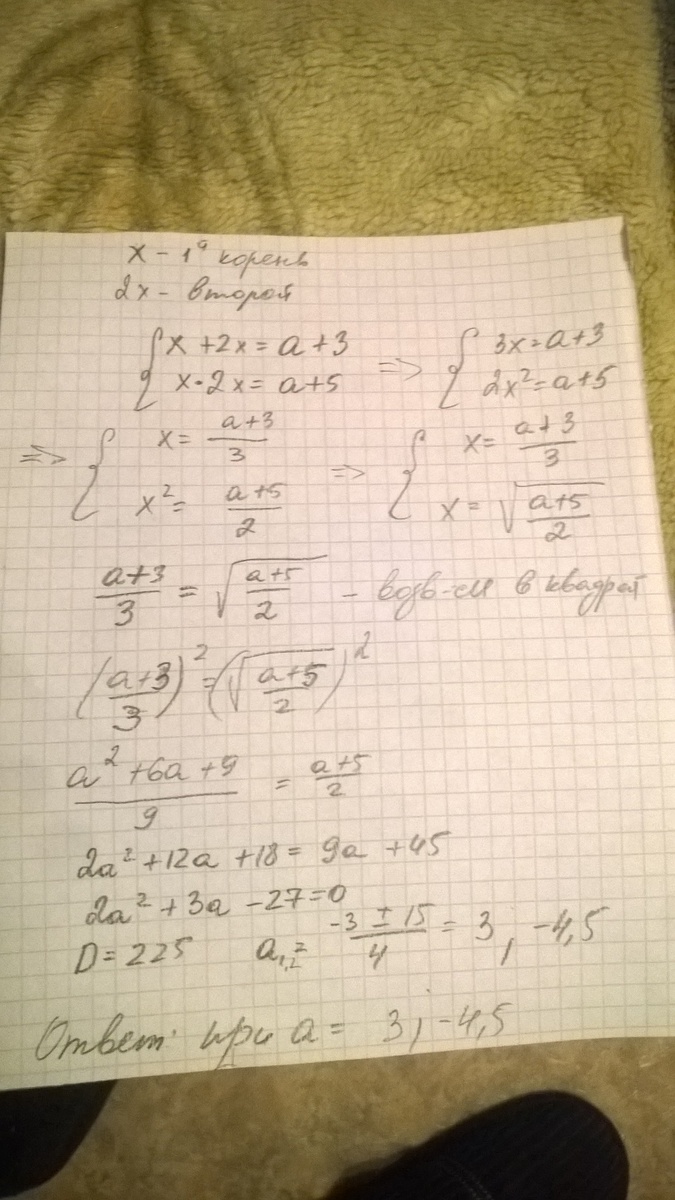 x - 1й корень
2x - второй
{ x + 2x = a + 3 ; x · 2x = a + 5 => { 3x = a + 3 ; 2x² = a + 5
=> { x = (a+3)/3 ; x² = (a+5)/2 => { x = (a+3)/3 ; x = √((a+5)/2)
(a+3)/3 = √((a+5)/2) - возв-ем в квадрат
((a+3)/3)² = (√((a+5)/2))²
(a² + 6a + 9)/9 = (a+5)/2
2a² + 12a + 18 = 9a + 45
2a² + 3a - 27 = 0
D = 225 a₁,₂ = (-3 ± 15)/4 = 3 ; -4,5
Ответ: при a = 3 ; -4,5